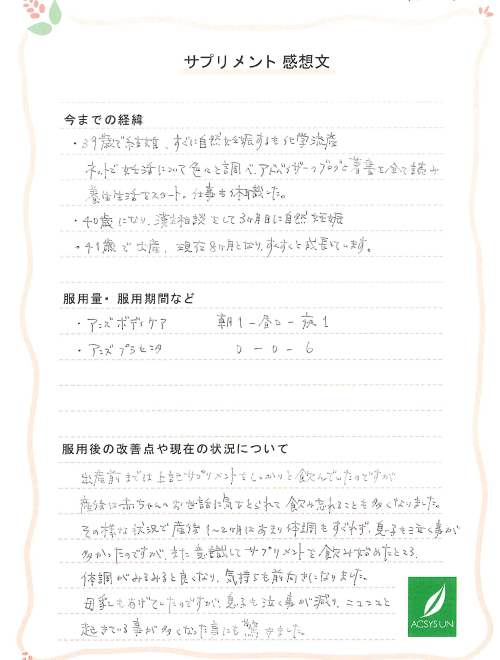 サプリメント 感想文
今までの経緯
・39歳で結婚、すぐに自然妊娠するも化学流産
ネットで妊活について色々と調べ、アドバイザーのブログと著書を全て読み
養生生活をスタート。仕事も休職した。
・40歳になり、漢方相談をして3ヶ月目に自然妊娠
・41歳で出産、現在8ヶ月となり、すくすくと成長しています。
服用量・服用期間など
・アンズボディケア 朝1-昼0-夜1
・アンズプラセンタ 0-0-6
服用後の改善点や現在の状況について
出産前までは上記サプリメントをしっかりと飲んでいたのですが
産後は赤ちゃんのお世話に気をとられて飲み忘れることも多くなりました。
その様な状況で産後1~2ヶ月はあまり体調もすぐれず、息子も泣く事が
多かったのですが、また意識してサプリメントを飲み始めたところ、
体調がみるみると良くなり、気持ちも前向きになりました。
母乳もあげていたのですが、息子も泣く事が減り、ニコニコと
起きている事が多くなった事にも驚きました。
ACSYSUN